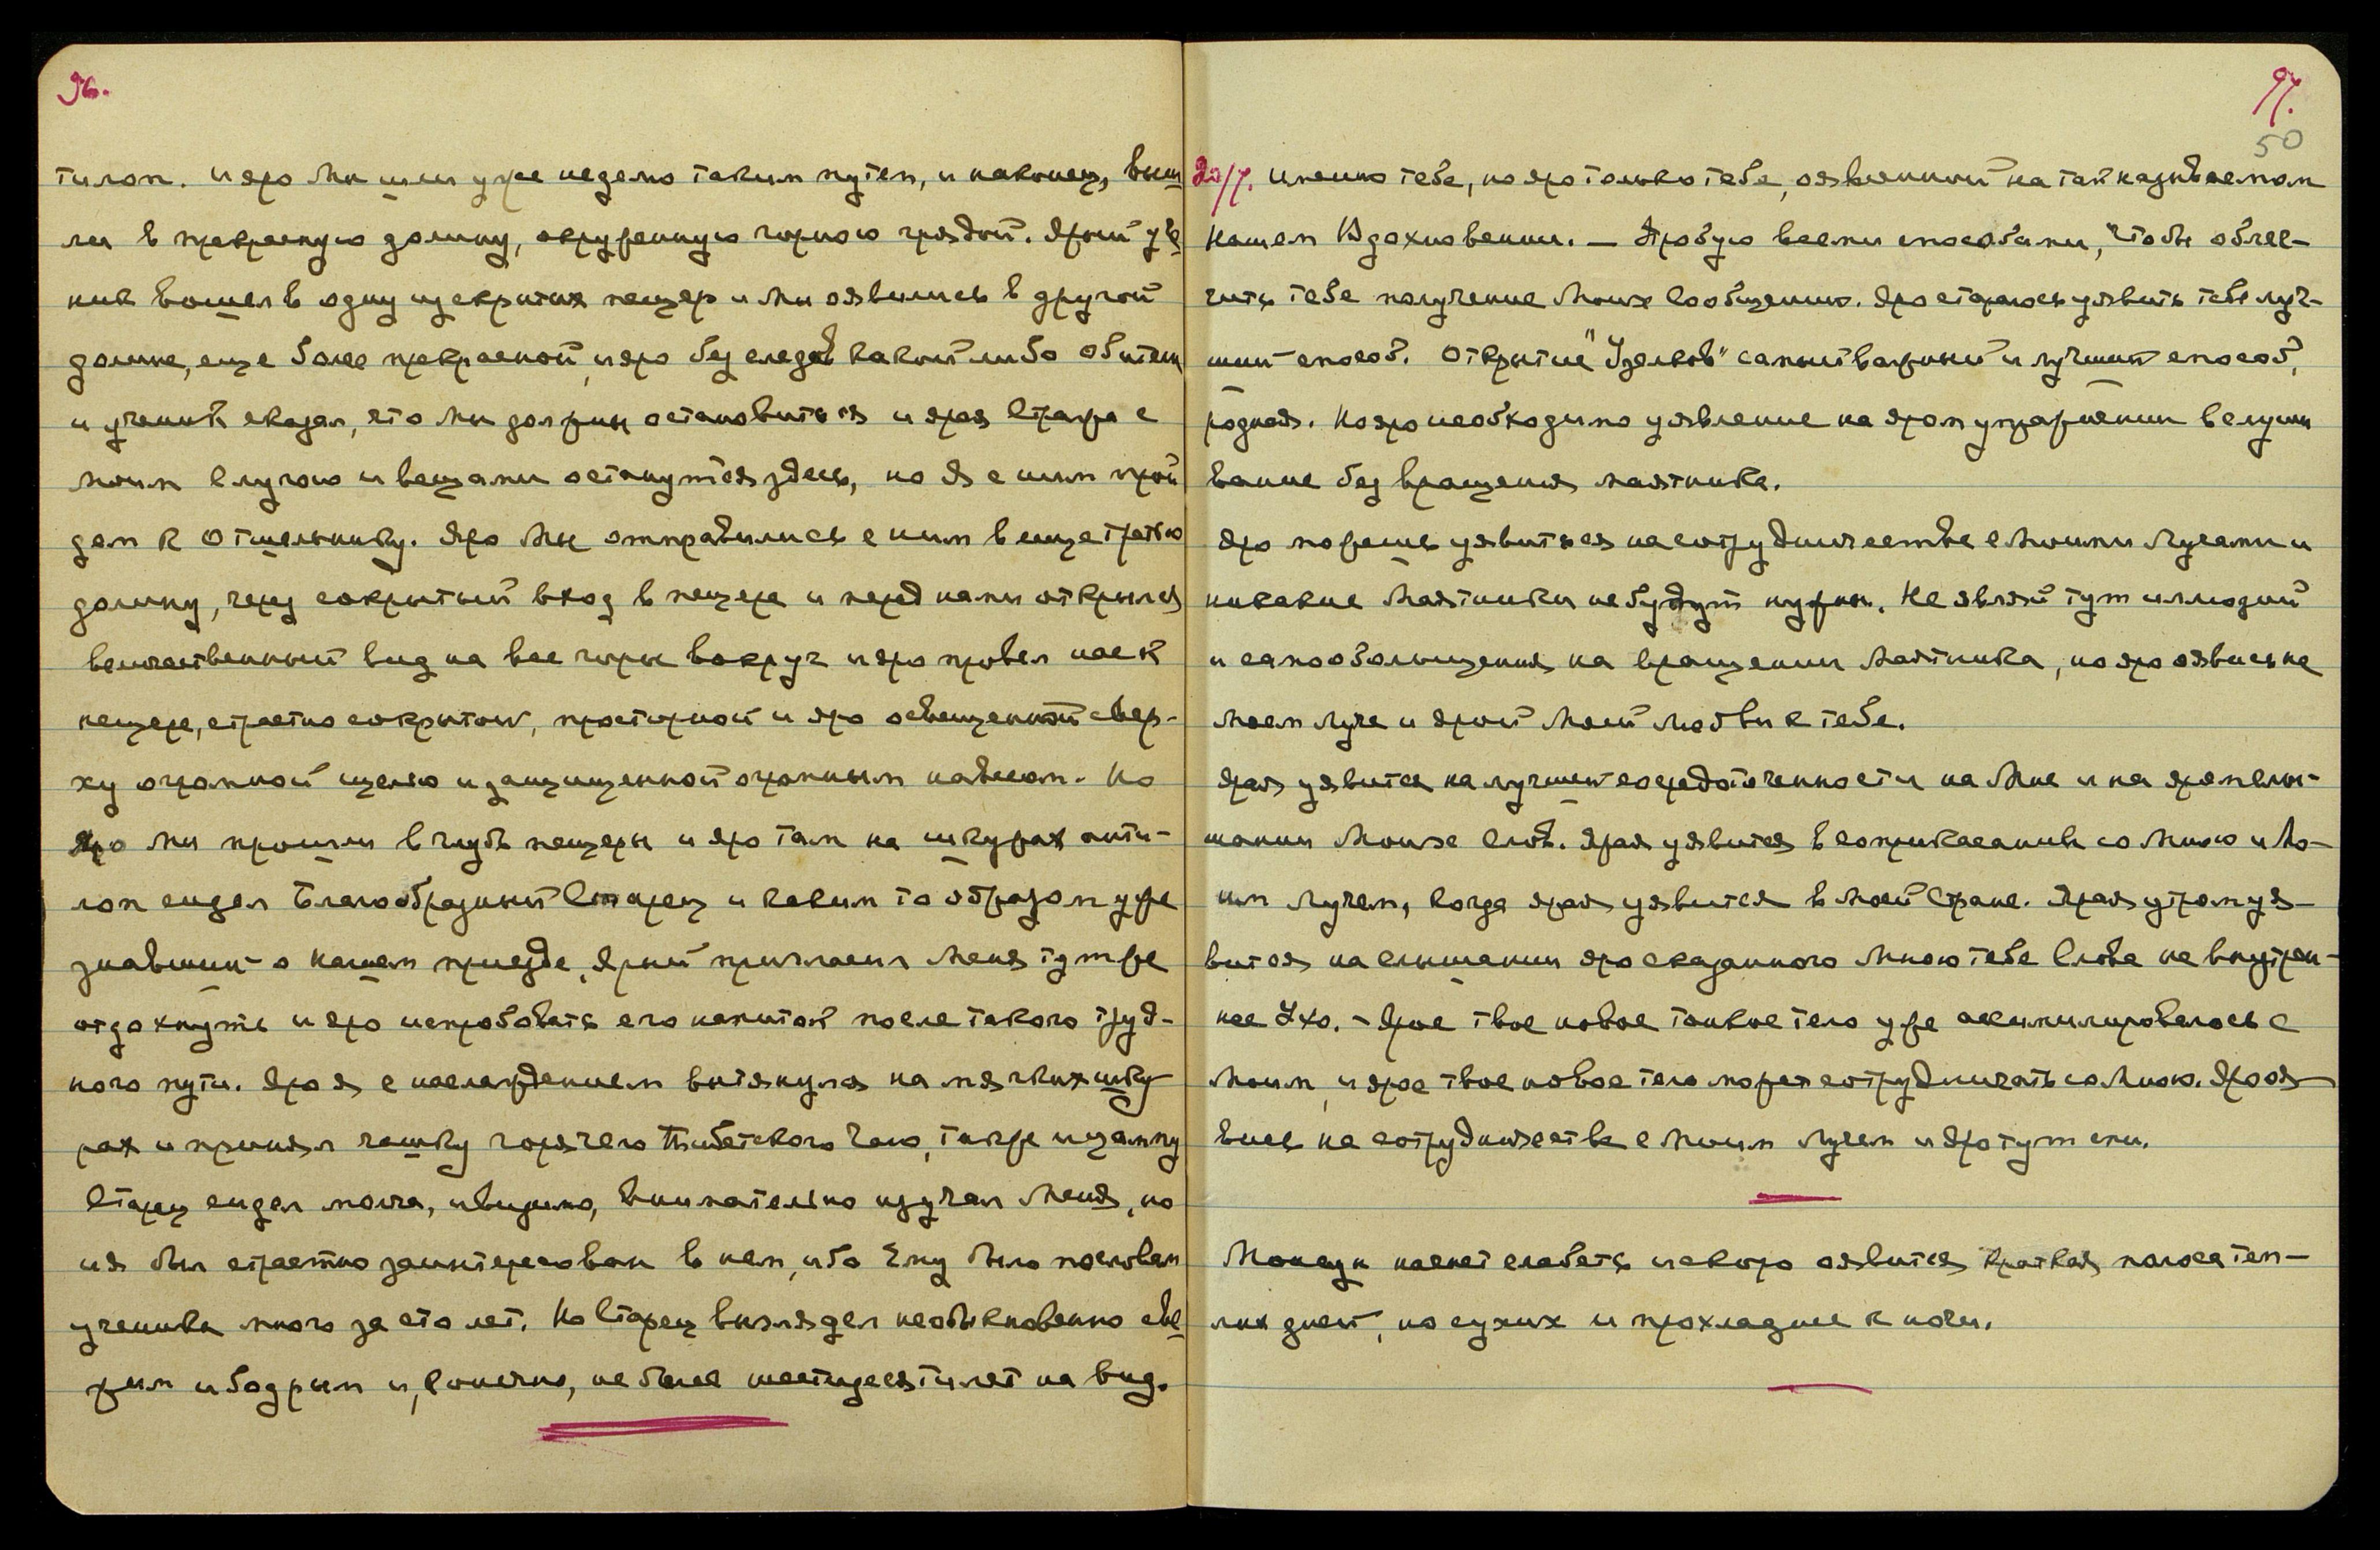 96.
тилоп. и яро Мы шли уже неделю таким путем, и наконец, выш
ли в прекрасную долину, окруженную горною грядой. Ярый уче
ник вошел в одну из скрытых пещер и мы оявились в другой
долине, еще более прекрасной, и яро без следов какой либо обители
и ученик сказал, что мы должны остановиться и ярая Стража с
моим Слугою и вещами останутся здесь, но Я с ним прой
дем к Отшельнику. Яро Мы отправились с ним в еще третью
долину, через сокрытый вход в пещере и перед нами открылся
величественный вид на все горы вокруг и яро провел нас к
пещере, страстно сокрытой, просторной и яро освещенной свер-
ху огромной щелью и защищенной огромным навесом. Но
яро мы прошли в глубь пещеры и яро там на шкурах анти-
лоп сидел Благообразный Старец и каким то образом уже
знавший о нашем приезде, Ярый пригласил Меня тут же
отдохнуть и яро испробовать его напиток после такого труд-
ного пути. Яро я с наслаждением вытянулся на мягких шку
рах и принял чашку горячего Тибетского Чаю, также и цампу
Старец сидел молча, и видимо, внимательно изучал Меня, но
и я был страстно заинтересован в нем, ибо Ему было по словам
ученика много за сто лет. Но Старец выглядел необыкновенно све
жим и бодрым и, конечно, не более шестидесяти лет на вид.
97.
50
20/7. Именно тебе, но яро только тебе, оявленной на так называемом
Нашем Вдохновении. — Пробую всеми способами, чтобы облег-
чить тебе получение Моих Сообщений. Яро стараюсь уявить тебе луч-
ший способ. Открытие "Узелков" самый важный и лучший способ,
родная. Но яро необходимо уявление на яром упражнении в слуши
вание без вращения маятника.
Яро можешь уявиться на сотрудничестве с Моими Лучами и
никакие Маятники не будут нужны. Не являй тут иллюзий
и самообольщения на вращении Маятника, но яро оявись на
моем Луче и ярой Моей Любви к тебе.
Ярая уявится на лучшей сосредоточенности на Мне и на яром слы-
шании Моих Слов. Ярая уявится в соприкасании со Мною и Мо-
им Лучем, когда ярая уявится в Моей Стране. Ярая утром уя-
вится на слышании яро сказанного Мною тебе Слова на внутрен-
нее Ухо. - Ярое твое новое тонкое тело уже ассимилировалось с
Моим, и ярое твое новое тело может сотрудничать со Мною. Яро оя
вись на сотрудничестве с Моим Лучем и яро тут спи.
Монсун начнет слабеть и скоро оявится краткая полоса теп-
лых дней, но сухих и прохладнее к ночи.